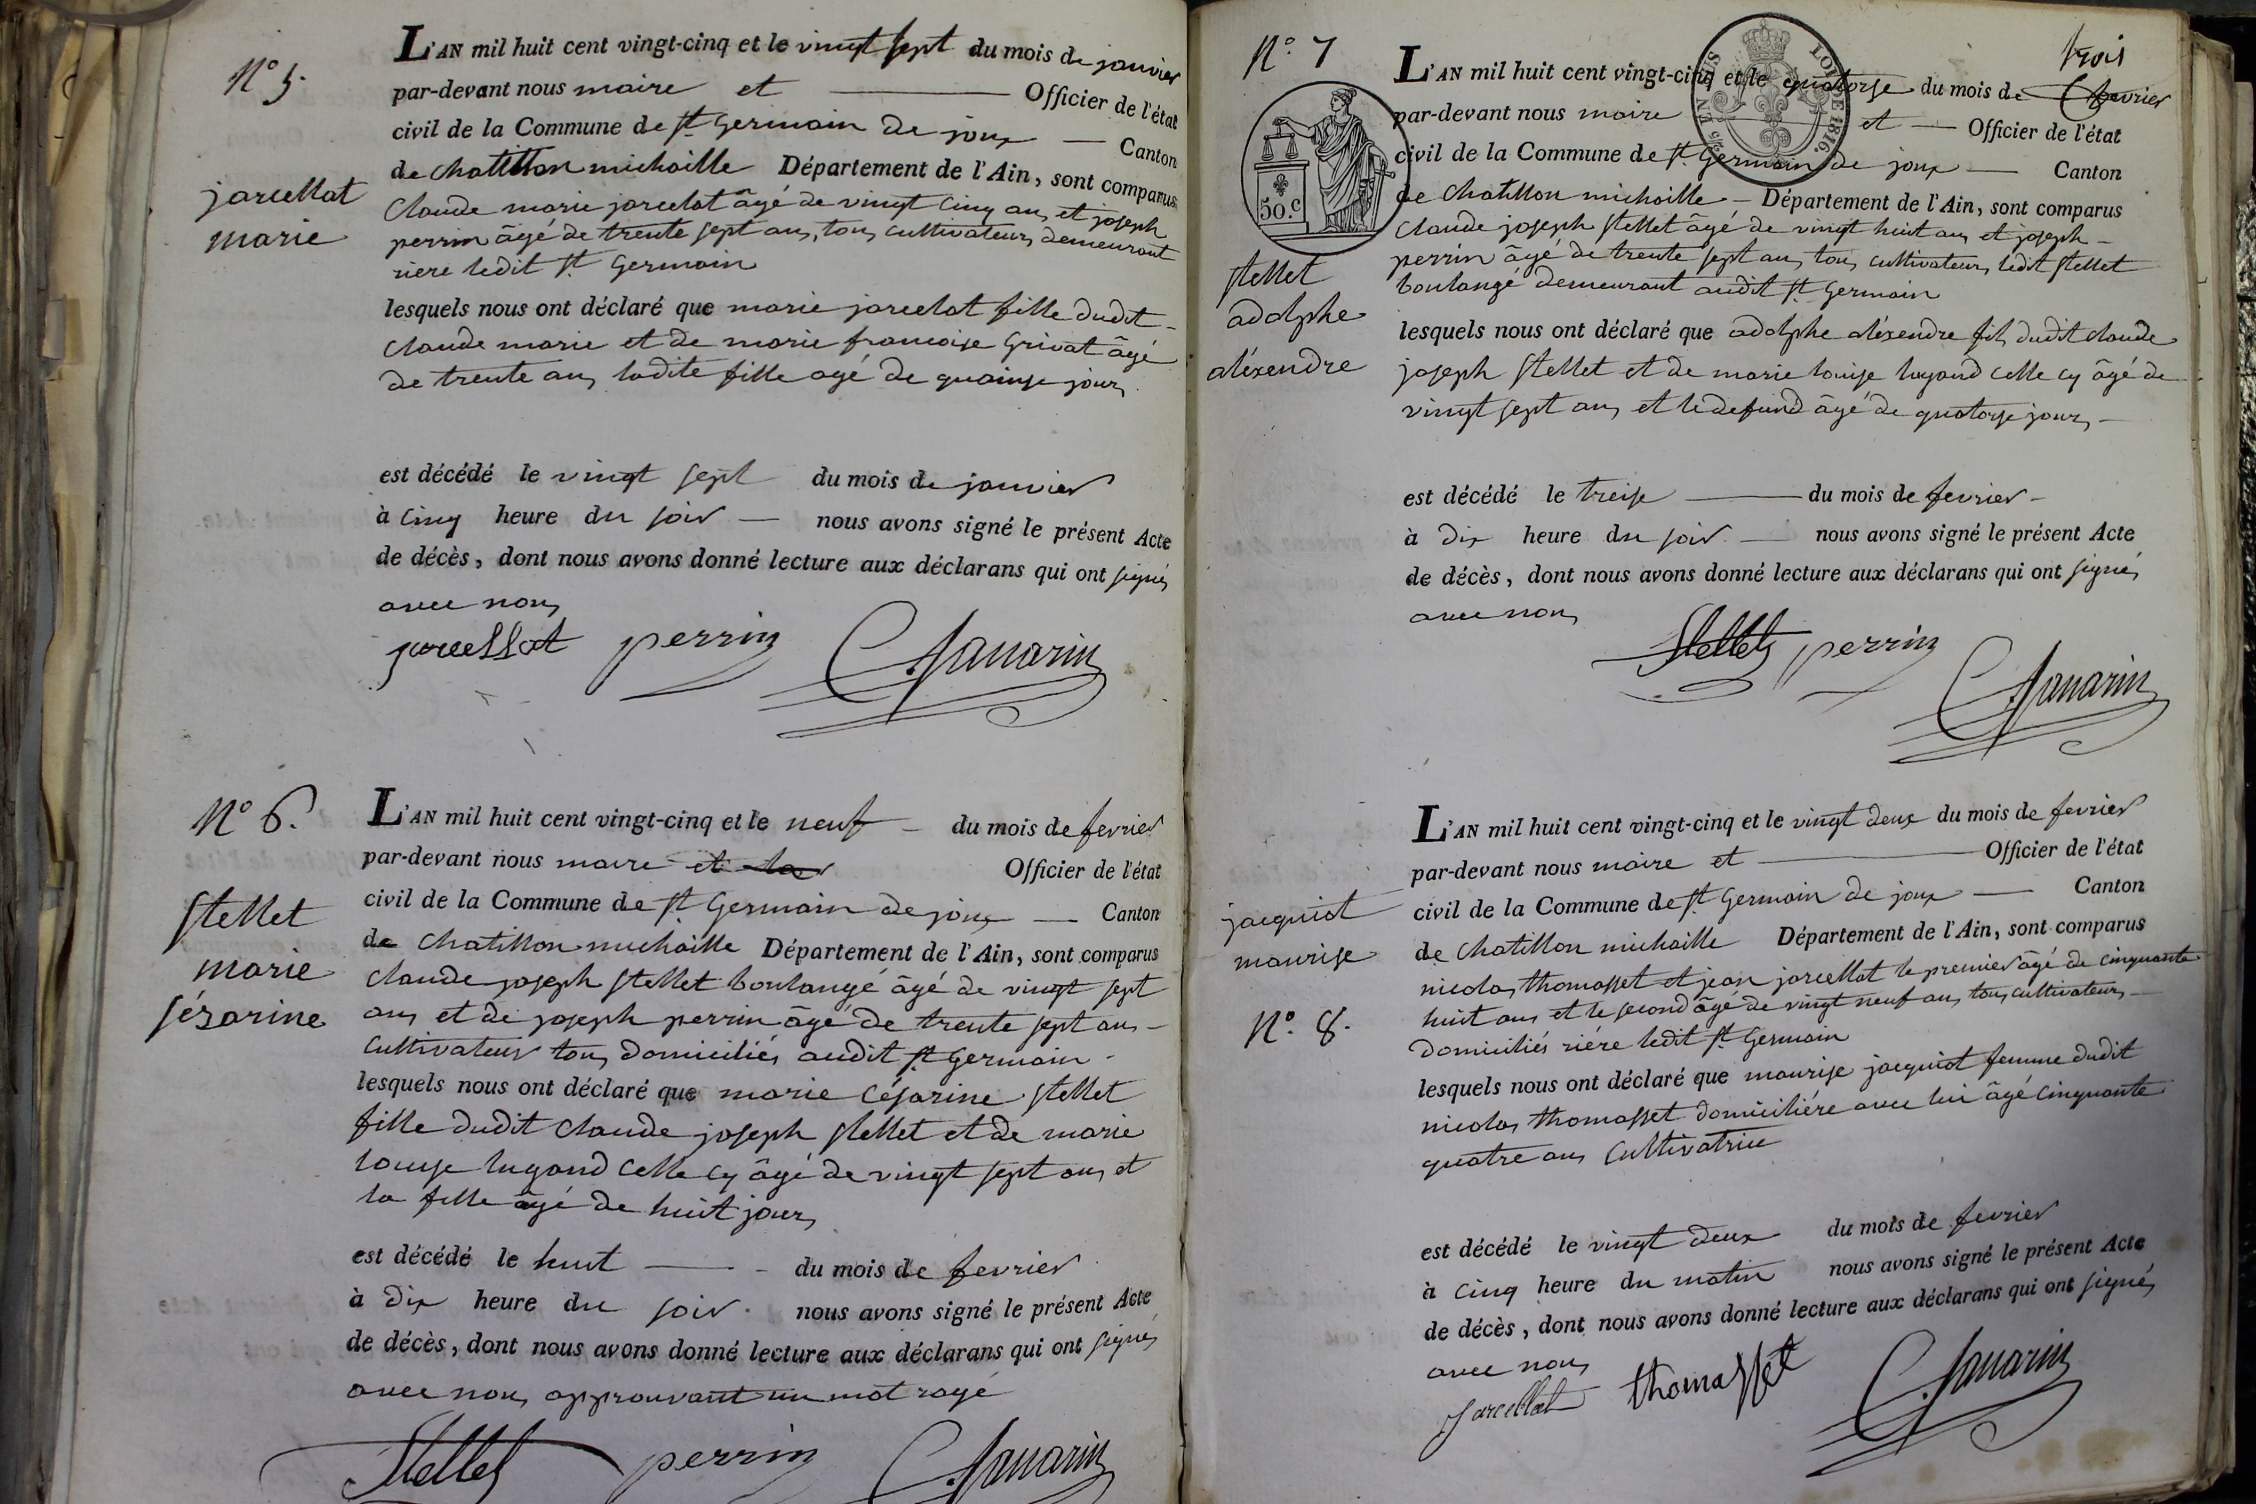 N° 5.
jarcellat
marie
L'AN mil huit cent vingt-cinq et le vingt sept du mois de janvier
par-devant nous maire et Officier de l'état
civil de la Commune de st Germain de joux Canton
de chatillon michaille Département de l'Ain, sont comparus
claude marie jarcelat âgé de vingt cinq ans et joseph
perrin âgé de trente sept ans, tous cultivateurs demeurant
riere ledit st Germain
lesquels nous ont déclaré que marie jarcelat fille dudit
claude marie et de marie francoise Grivat âgé
de trente ans ladite fille agé de quainse jours
est décédé le vingt sept du mois de janvier
à cinq heure du soir nous avons signé le présent Acte
de décès, dont nous avons donné lecture aux déclarans qui ont signés
avec nous
jarcellat perrin
N° 6.
stellet
marie
sézarine
L'AN mil huit cent vingt-cinq et le neuf du mois de fevrier
par-devant nous maire et Officier de l'état
civil de la Commune de st Germain de joux Canton
de chatillon michaille Département de l'Ain, sont comparus
claude joseph stellet boulangé âgé de vingt sept
ans et de joseph perrin âgé de trente sept ans
cultivateur tous domiciliés audit st Germain
lesquels nous ont déclaré que marie césarine stellet
fille dudit claude joseph stellet et de marie
louise lugand celle cy âgé de vingt sept ans et
la fille âgé de huit jours
est décédé le huit du mois de fevrier
à dix heure du soir. nous avons signé le présent Acte
de décès, dont nous avons donné lecture aux déclarans qui ont signés
avec nous approuvant un mot rayé
Stellet perrin
N° 7
50.C
LOI DE 1816.
stellet
adolphe
aléxendre
trois
L'AN mil huit cent vingt-cinq et le quatorse du mois de fevrier
par-devant nous maire et Officier de l'état
civil de la Commune de st Germain de joux Canton
de chatillon michaille Département de l'Ain, sont comparus
claude joseph stellet âgé de vingt huit ans et joseph
perrin âgé de trente sept ans tous cultivateurs ledit stellet
boulangé demeurant audit st Germain
lesquels nous ont déclaré que adolphe aléxendre fils dudit claude
joseph stellet et de marie louise lugand celle cy âgé de
vingt sept ans et le defund âgé de quatorse jours
est décédé le treise du mois de fevrier
à dix heure du soir nous avons signé le présent Acte
de décès, dont nous avons donné lecture aux déclarans qui ont signés
avec nous
Stellet perrin
jacquiot
maurise
N° 8.
L'AN mil huit cent vingt-cinq et le vingt deux du mois de fevrier
par-devant nous maire et Officier de l'état
civil de la Commune de st Germain de joux Canton
de chatillon michaille Département de l'Ain, sont comparus
nicolas thomasset et jean jarcellat le premier âgé de cinquante
huit ans et le second âgé de vingt neuf ans tous cultivateurs
domiciliés riére ledit st Germain
lesquels nous ont déclaré que maurise jacquiot femme dudit
nicolas thomasset domiciliére avec lui âgé cinquante
quatre ans cultivatrice
est décédé le vingt deux du mois de fevrier
à cinq heure du matin nous avons signé le présent Acte
de décès, dont nous avons donné lecture aux déclarans qui ont signés
avec nous
jarcellat thomasset